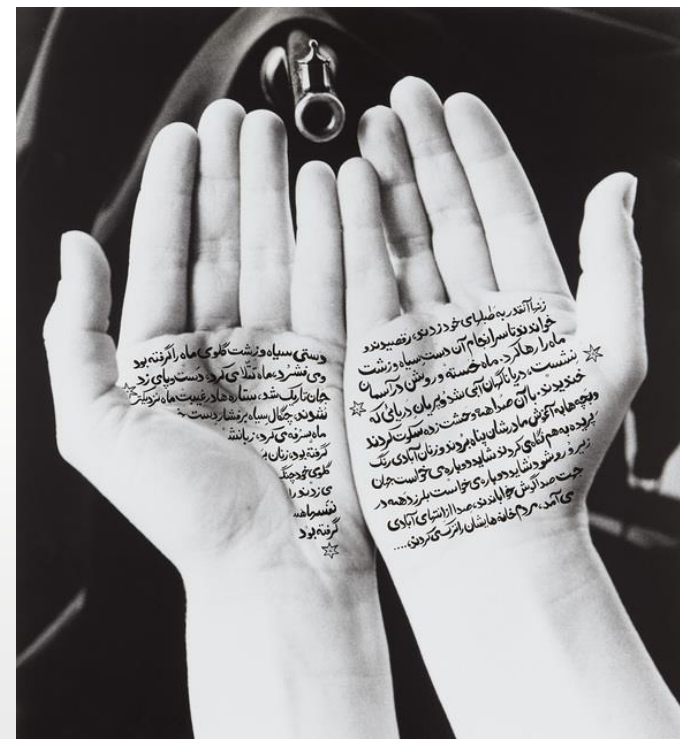 دستی سیاه و زشت گلوی ماه را گرفته بود
و می فشرد، ماه تقلا می کرد، دست و پا می زد
تاریک شد، ستاره ها در غیبت ماه نزدیکتر
نشدند، چنگال سیاه بر فشار دست
ماه سرفه می کرد، زبانش
گرفته بود، زنان
گلوی خود چنگ
می زدند

گرفته بود
زنها آنقدر به طبلهای خود زدند، رقصیدند و
خواندند تا سرانجام آن دست سیاه و زشت
ماه را رها کرد، ماه خسته و روشن در آسمان
نشست، دریا ناگهان آبی شد و پریان دریائی که
خندیدند. با آن صدا همه وحشت زده سکوت کردند
و بچه ها به آغوش مادرشان پناه بردند و زنان آبادی رنگ
پریده به هم نگاه می کردند شاید دوباره می خواست جهان
زیر و رو شود شاید دوباره می خواست بلرزد همه در
جهت صدا گوش خواباندند، صدا از انتهای آبادی
می آمد، مردم خانه هایشان را ترک می کردند،....